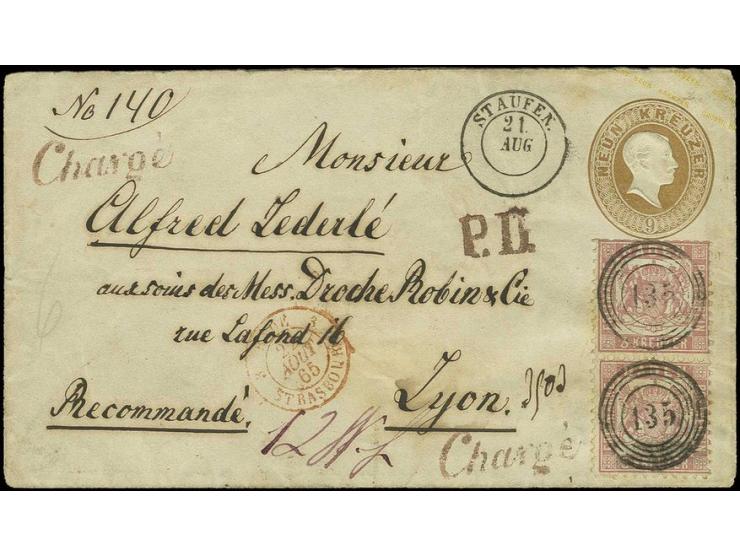 No 140
Chargé
STAUFEN.
21
AUG
NEUN KREUZER
9
Monsieur
Alfred Lederlé
P.D.
135
KREUZER
aux soins des Mess. Droche Robin & Cie
rue Lafond 16
AOUT
65
STRASBOURG
135
Recommandé.
Lyon.
Chargé